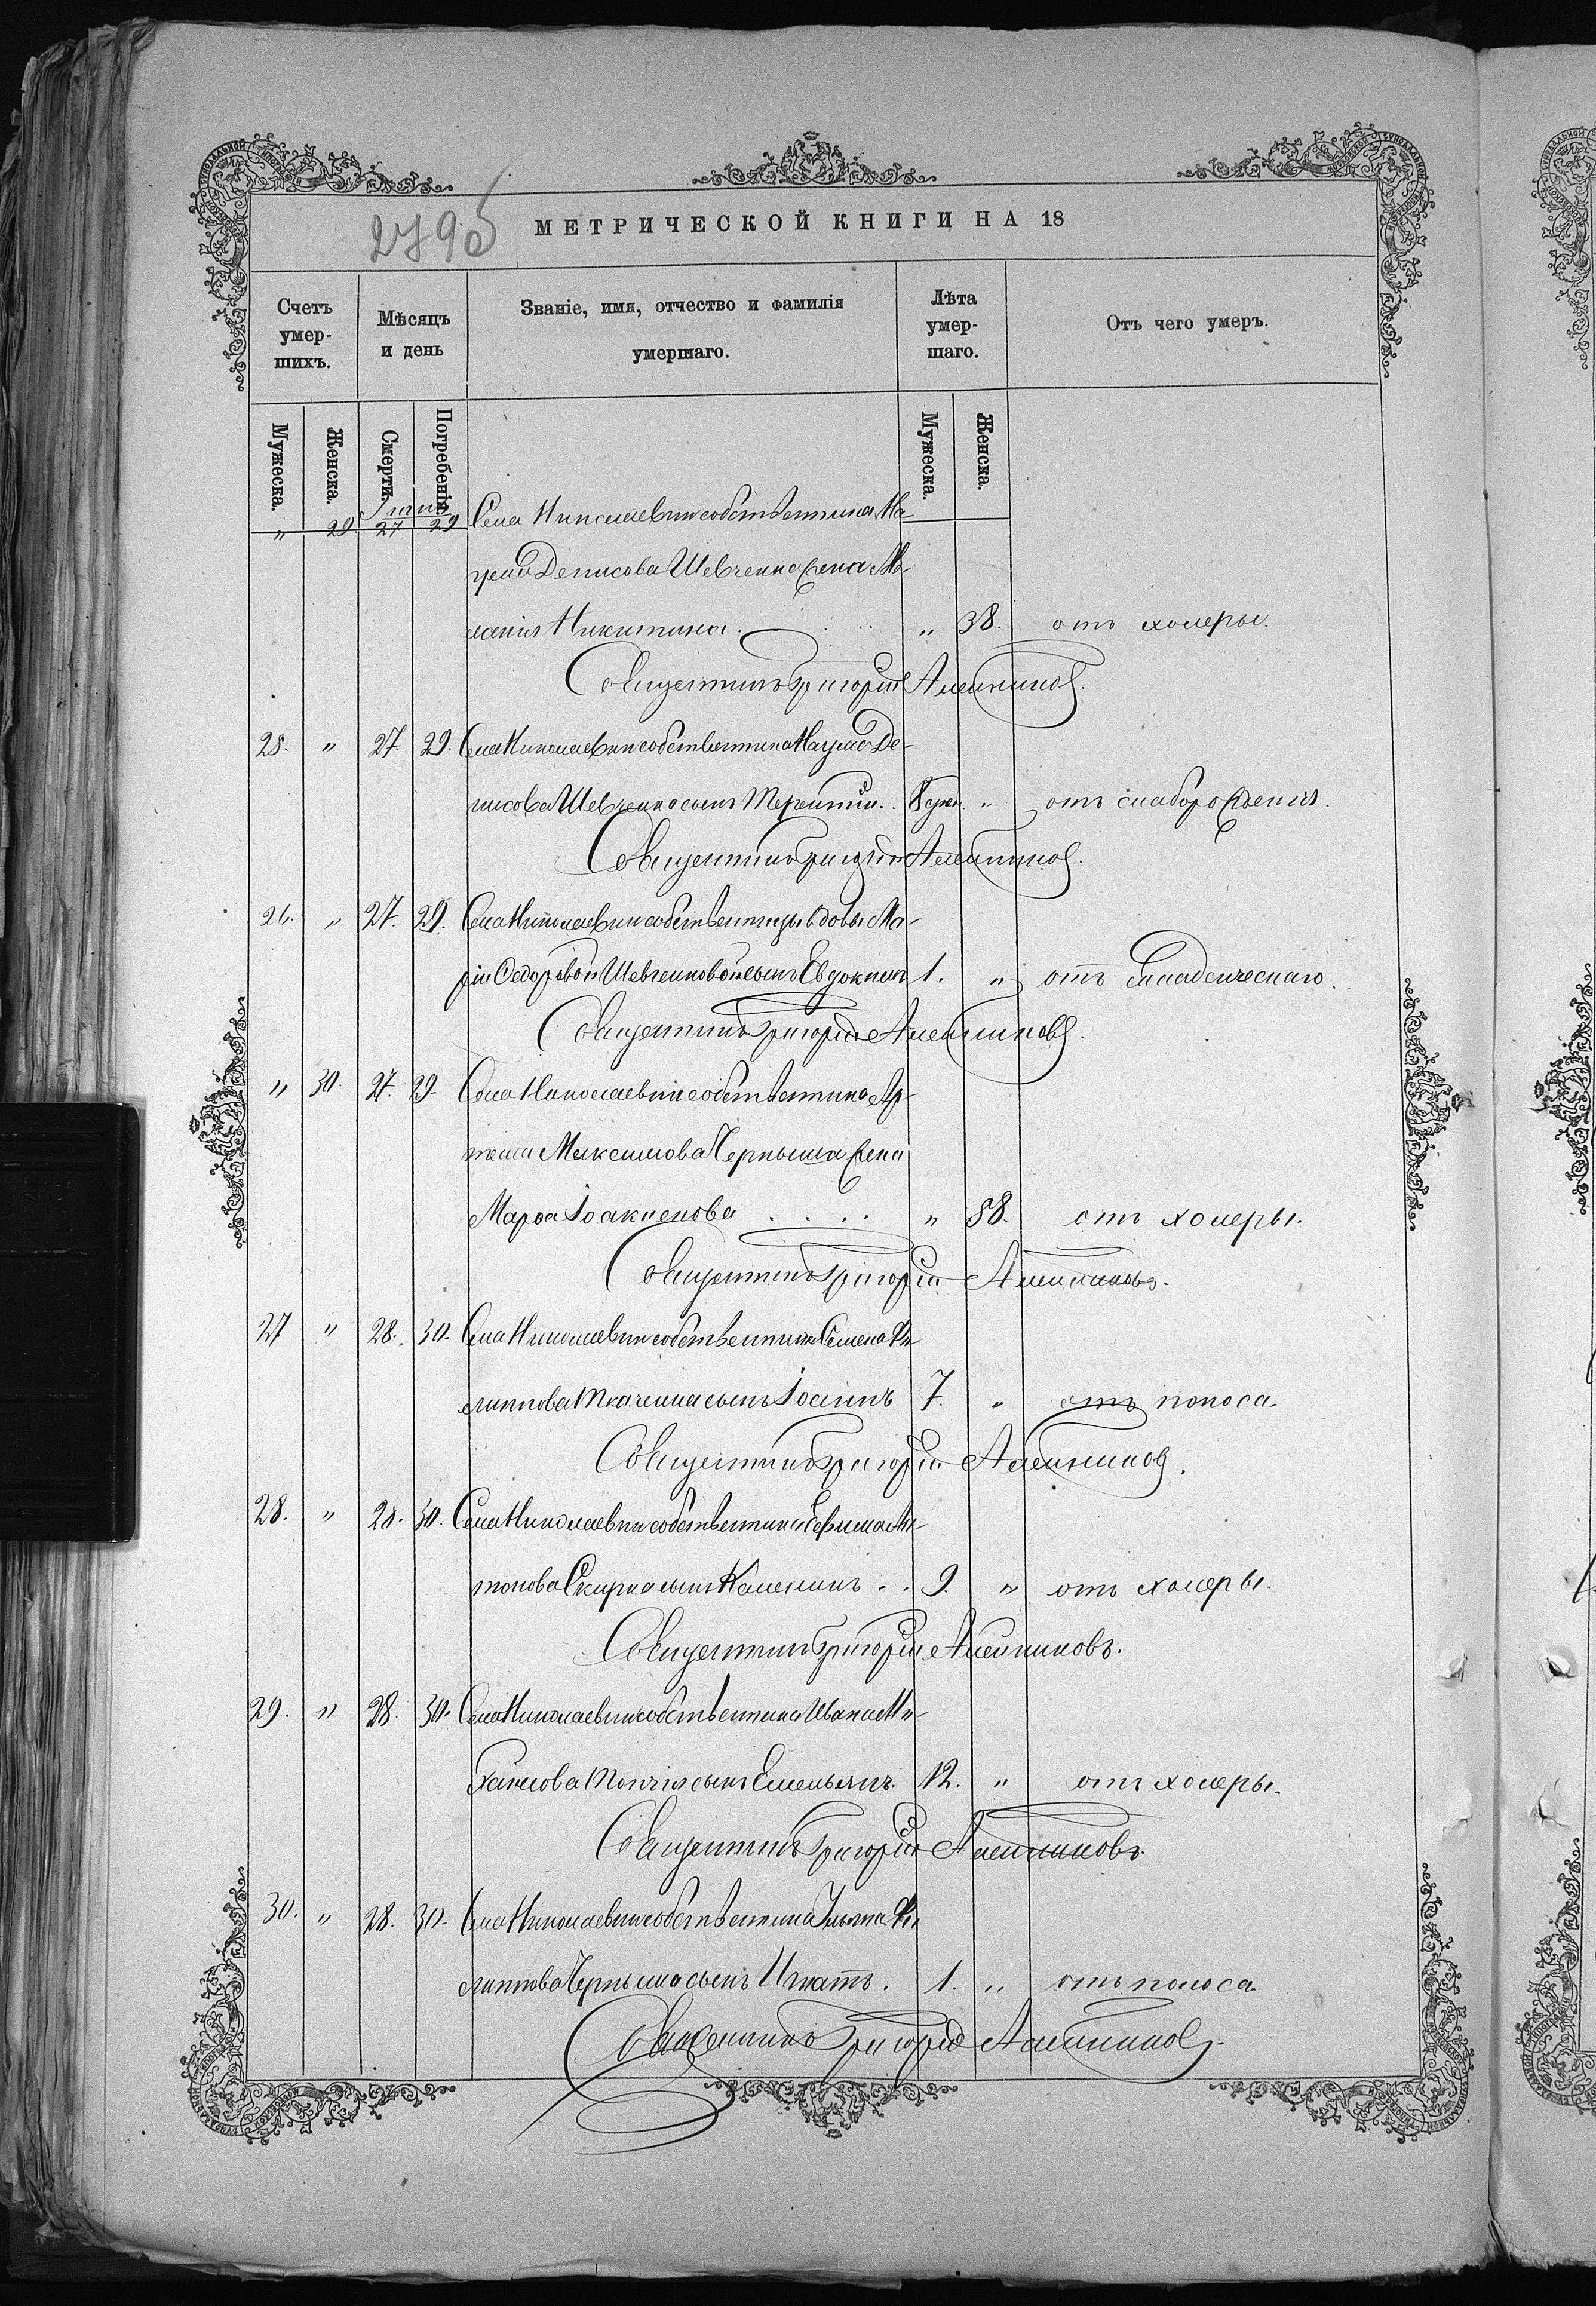 279об
МЕТРИЧЕСКОЙ КНИГИ НА 18
Счетъ умер- шихъ.
Мѣсяцъ и день
Званіе, имя, отчество и фамилія умершаго.
Лѣта умер- шаго.
Отъ чего умеръ.
Мужеска. Женска. Смерти. Погребенія. Мужеска. Женска.
" 29 27 29 Села Николаевки собственника На-
ума Денисова Шевченка жена Ме-
ланія Никитина. " 38. отъ холеры.
Священникъ Григорій Алейниковъ.
25. " 27. 29. Села Николаевки собственника Наума Де-
нисова Шевченка сынъ Терентій. 8 " отъ слаборожденія.
Священникъ Григорій Алейниковъ.
26. " 27. 29. Села Николаевки собственницы вдовы Ма-
ріи Ѳедоровой Шевченковой сынъ Евдокимъ 1. " отъ младенческаго.
Священникъ Григорій Алейниковъ.
" 30. 27. 29. Села Николаевки собственника Ар-
тема Максимова Черныша жена
Марѳа Іоакимова . . . . " 58. отъ холеры.
Священникъ Григорій Алейниковъ.
27 " 28. 30. Села Николаевки собственника Семена Фи-
липпова Ткаченка сынъ Іоаннъ 7. " отъ поноса.
Священникъ Григорій Алейниковъ.
28. " 28. 30. Села Николаевки собственника Ефима Ан-
тонова сынъ . . 9. " отъ холеры.
Священникъ Григорій Алейниковъ.
29. " 28. 30. Села Николаевки собственника Ивана Ми-
хайлова сынъ Емельянъ. 12. " отъ холеры.
Священникъ Григорій Алейниковъ.
30. " 28. 30. Села Николаевки собственника Фи-
липпова Черныша сынъ Игнатъ. 1. " отъ поноса.
Священникъ Григорій Алейниковъ.